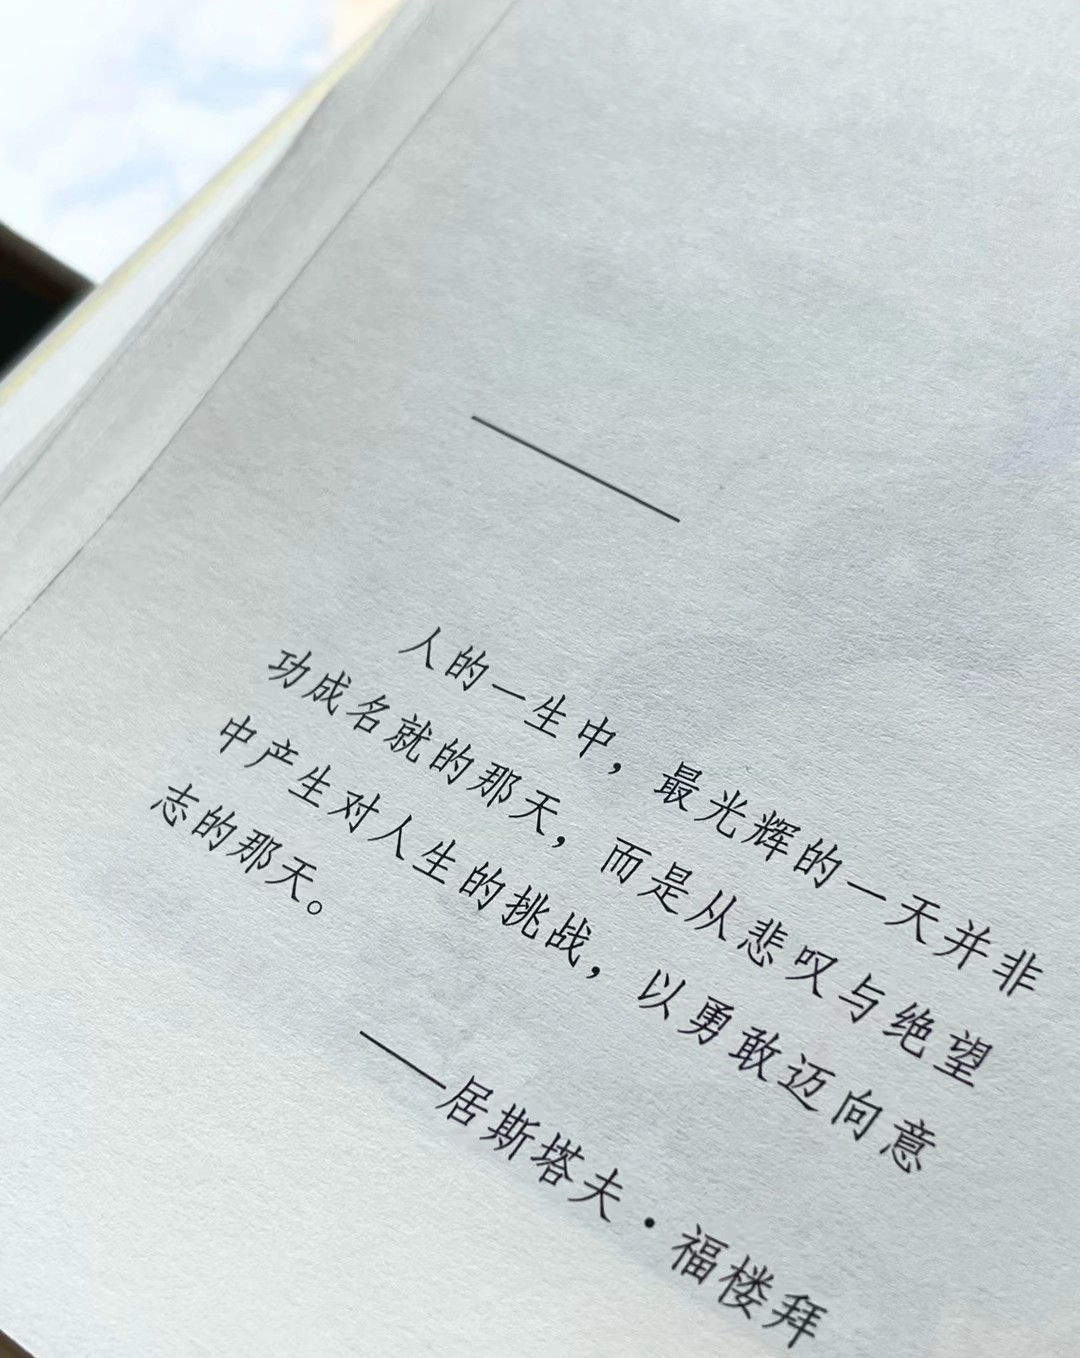 人的一生中，最光辉的一天并非
功成名就的那天，而是从悲叹与绝望
中产生对人生的挑战，以勇敢迈向意
志的那天。
——居斯塔夫·福楼拜